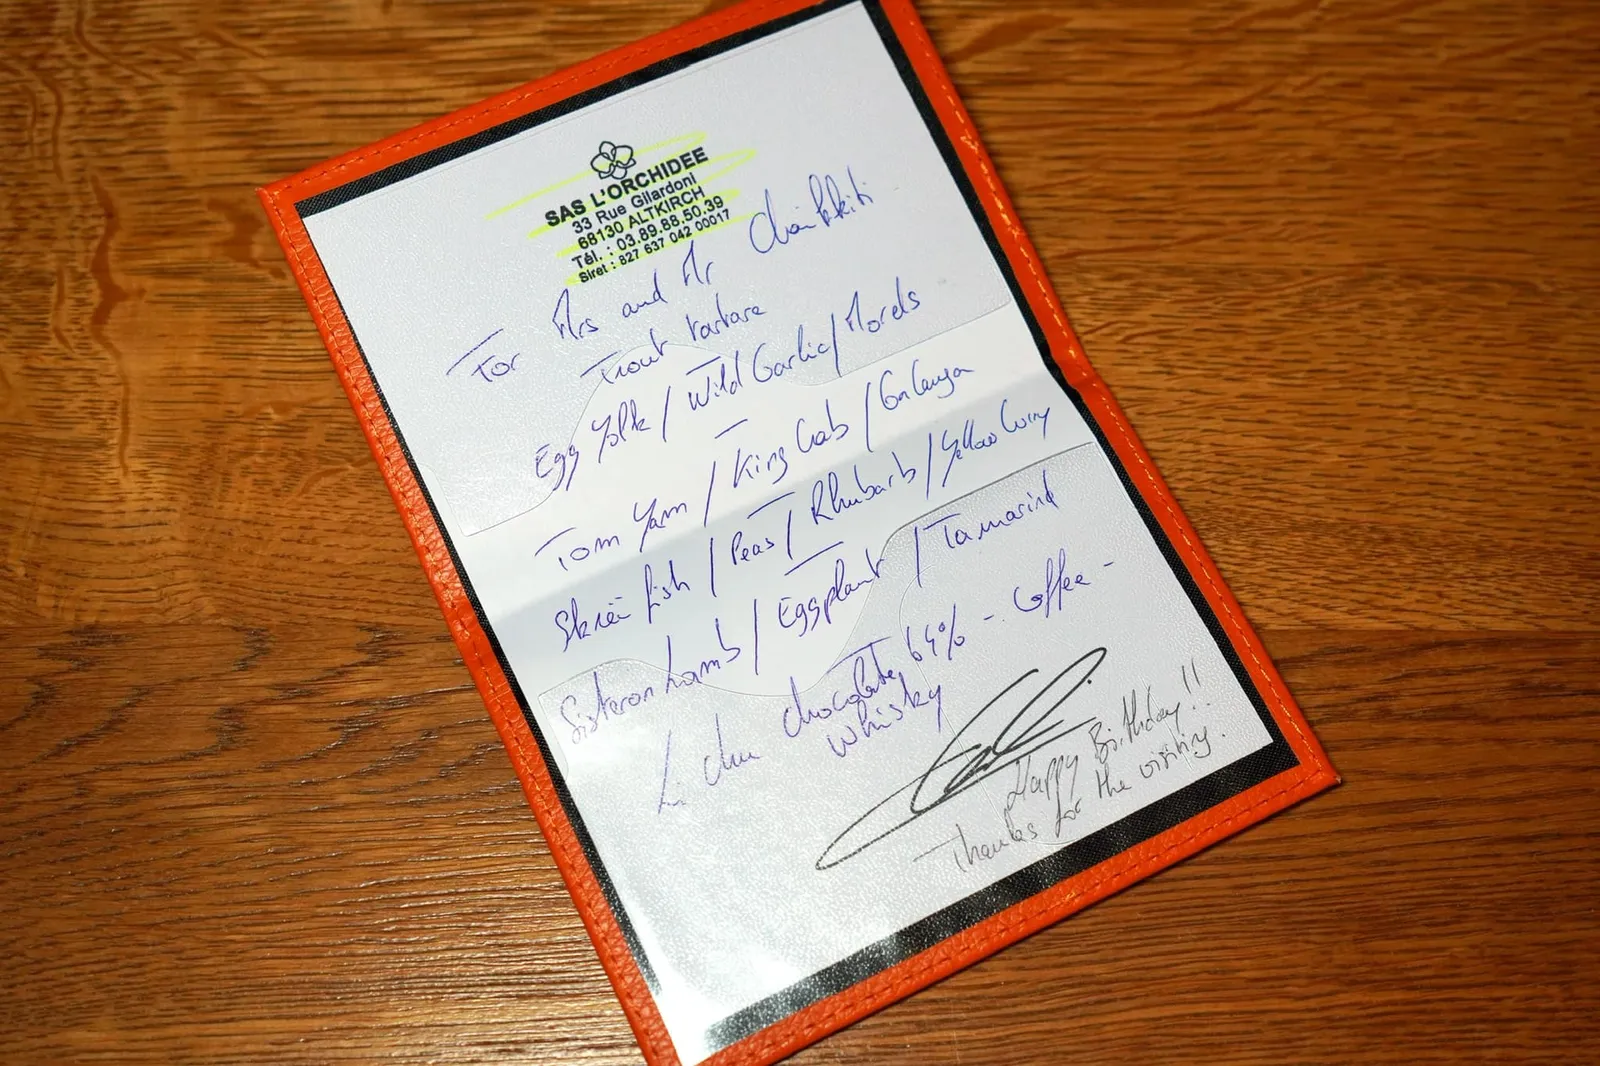 SAS L'ORCHIDEE
33 Rue Gilardoni
68130 ALTKIRCH
Tél. : 03.89.88.50.39
Siret : 827 637 042 00017
For Mrs and Mr
Trout tartare
Egg Yolk / Wild Garlic / Morels
Tom Yam / King Crab / Galanga
Skreï fish / Peas / Rhubarb / Yellow Curry
Sisteron Lamb / Eggplant / Tamarind
chocolate 64% - Coffee -
Whisky
Happy Birthday!!
Thanks for the visiting.